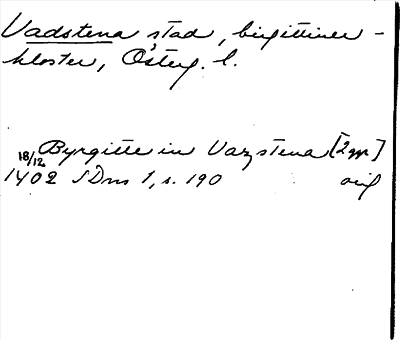 Vadstena stad, birgittiner-
kloster, Österg. l.
18/12 Byrgitte in Vazstena [2 ggr]
1402 SDns 1, s. 190 orig